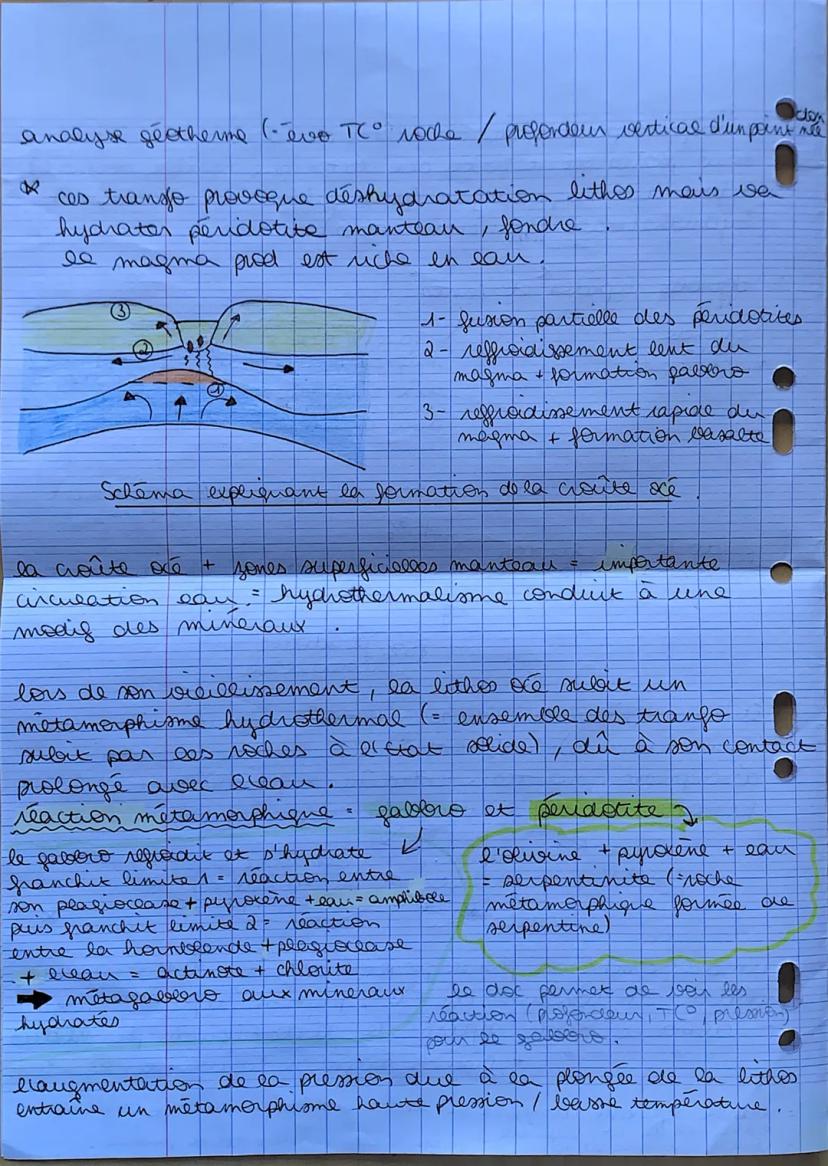 analyse géotherme (= évo T(° roche / profondeur vertical d'un point donné
* ces transfo provoque déshydratation lithos mais va
hydrater péridotite manteau, fondre.
le magma prod est riche en eau.
③
②
①
1- fusion partielle des péridotites
2- reffroidissement lent du
magma + formation gabbro
3- reffroidissement rapide du
magma + formation basalte
Schéma expliquant la formation de la croûte océ.
la croûte océ + zones superficielles manteau = importante
circulation eau = hydrothermalisme conduit à une
modif des minéraux.
lors de son vieillissement, la lithos océ subit un
métamorphisme hydrothermal (= ensemble des transfo
subit par ces roches à l'état solide), dû à son contact
prolongé avec l'eau.
réaction métamorphique = gabbro et péridotite
le gabbro refroidit et s'hydrate
franchit limite 1 = réaction entre
son plagioclase + pyroxène + eau = amplibole
puis franchit limite 2 = réaction
entre la hornblende + plagioclase
+ l'eau = actinote + chlorite
➡ métagabbro aux minéraux
hydratés
l'olivine + pyroxène + eau
= serpentinite (= roche
métamorphique formée de
serpentine)
le doc permet de voir les
réaction (profondeur, T(°, pression)
pour le gabbro.
l'augmentation de la pression due à la plongée de la lithos
entraîne un métamorphisme haute pression / basse température.